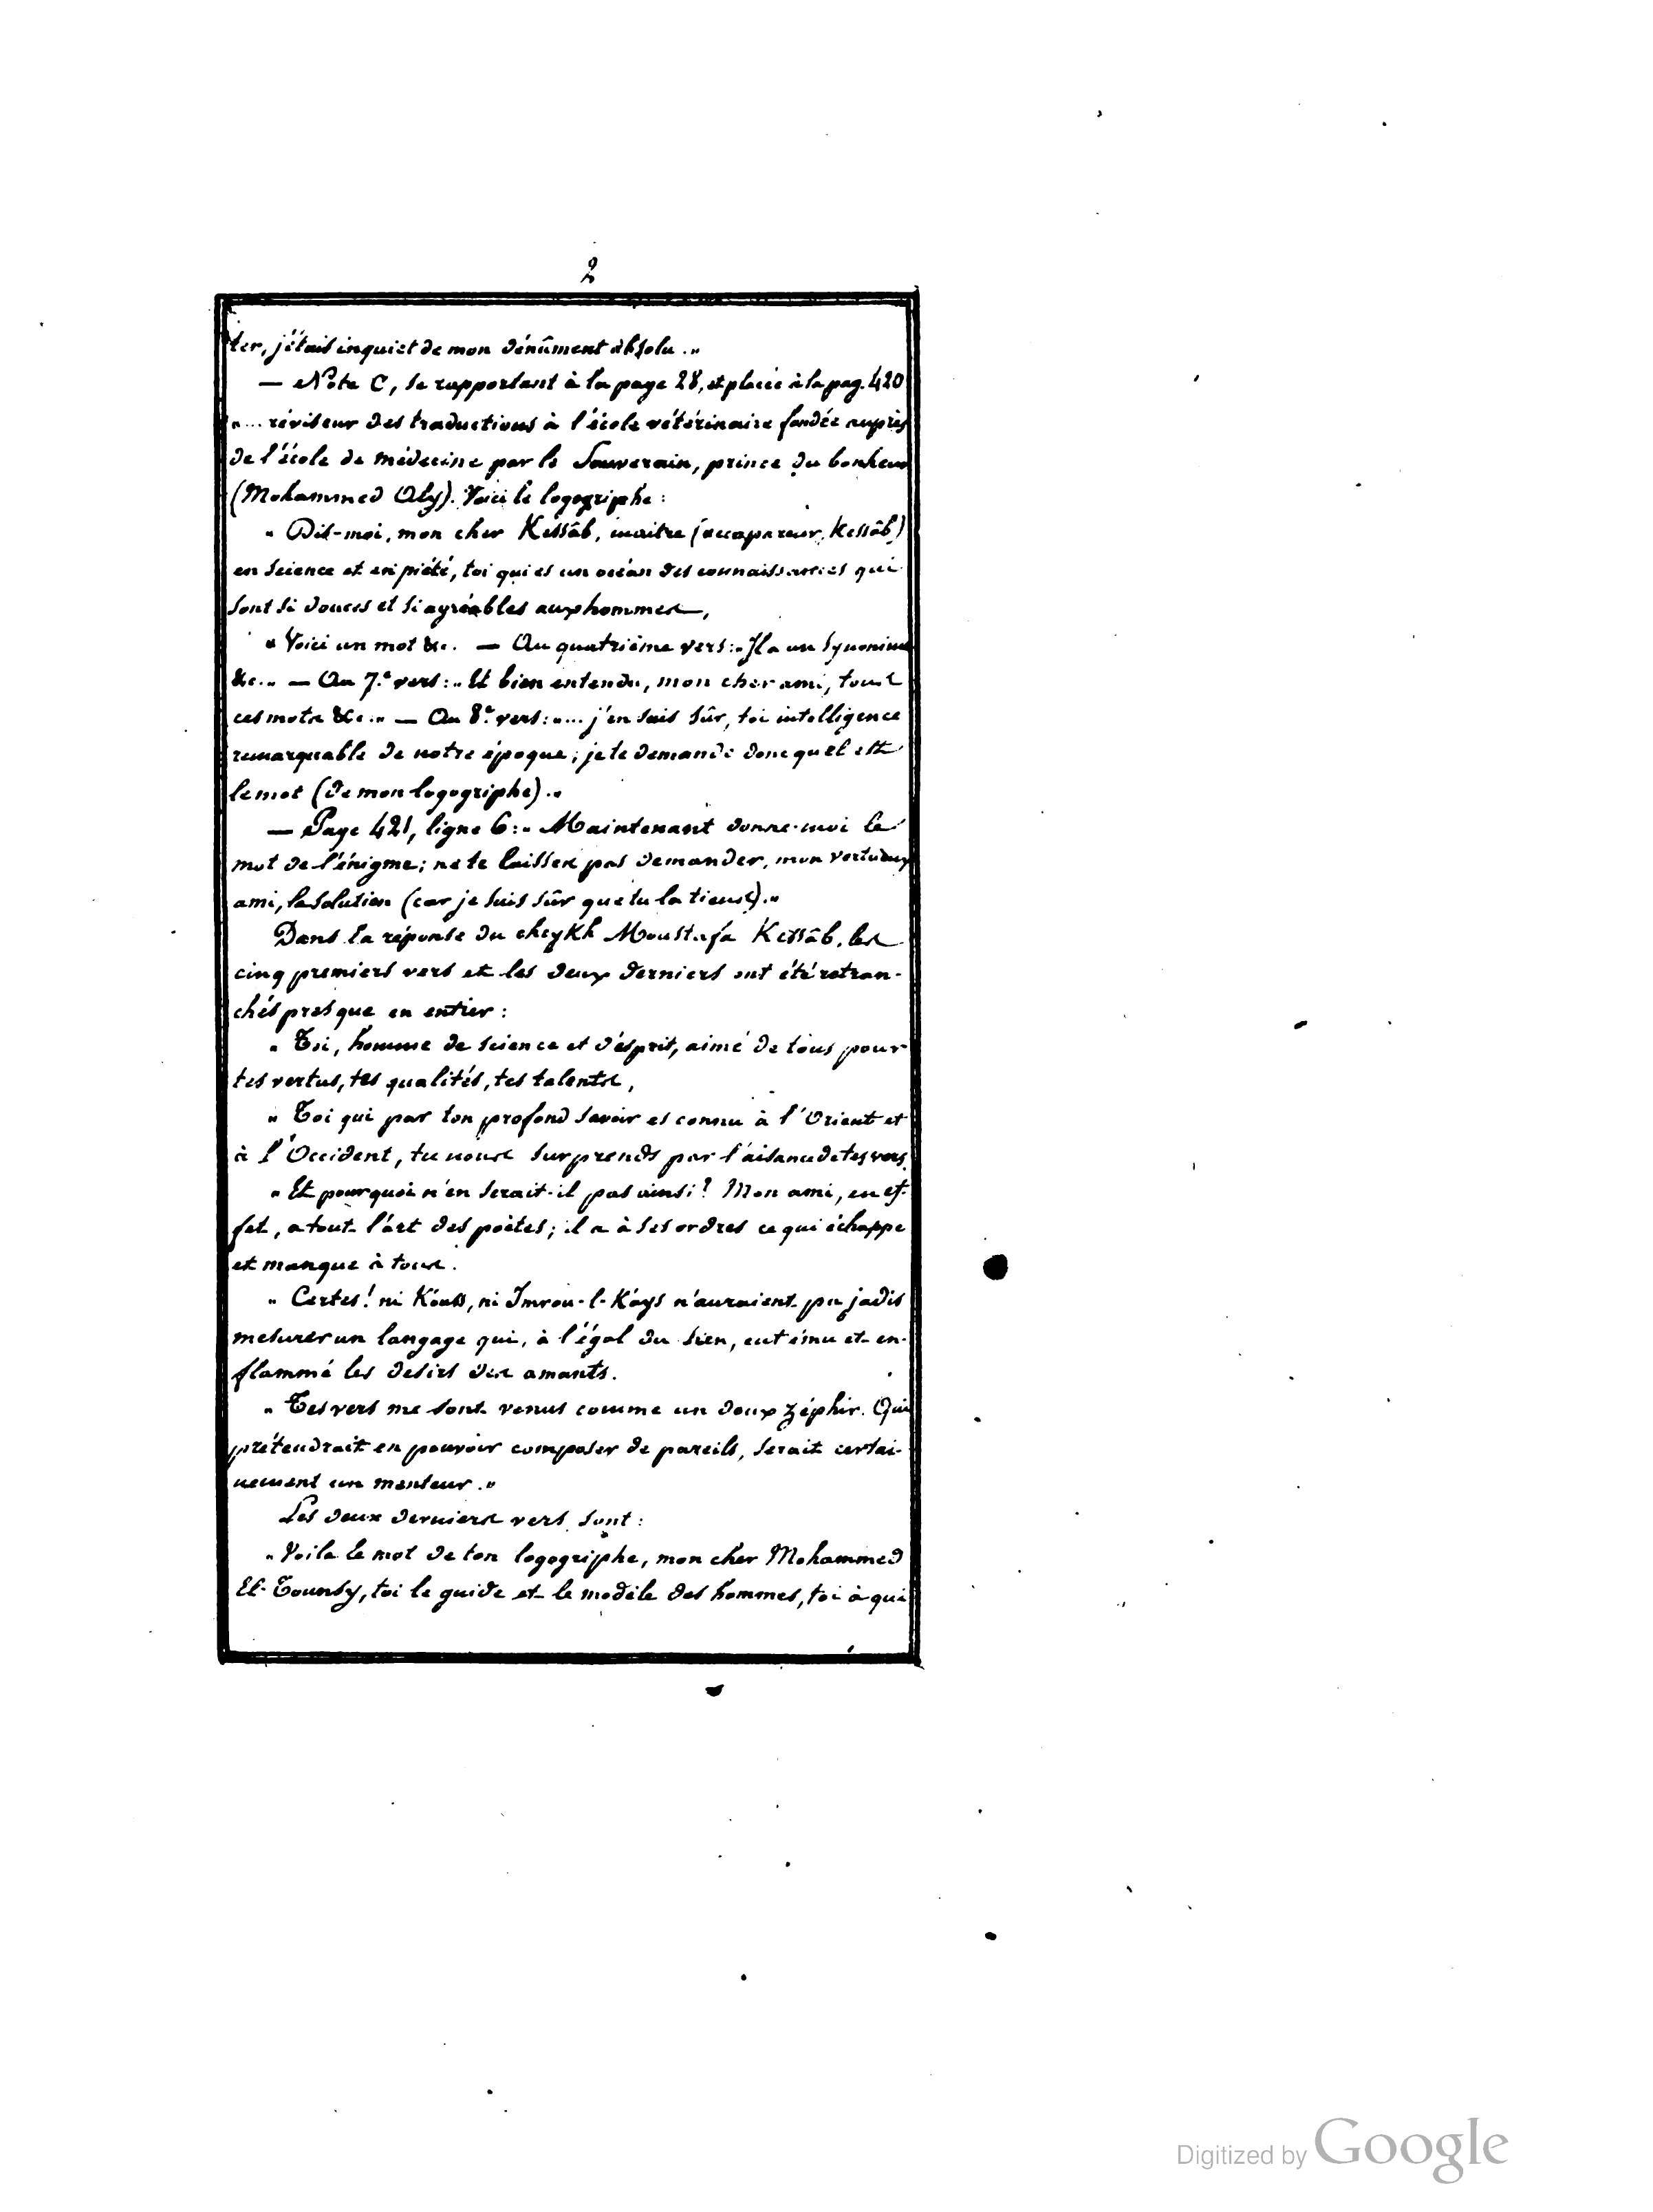 2
ter, j'étais inquiet de mon dénûment absolu."
— Note C, se rapportant à la page 28, et placée à la pag. 420
"... réviseur des traductions à l'école vétérinaire fondée auprès
de l'école de médecine par le Souverain, prince du bonheur
(Mohammed Aly). Voici le logogriphe :
" Dis-moi, mon cher Kessâb, maître (accapareur, Kessâb)
en science et en piété, toi qui es un océan des connaissances qui
sont si douces et si agréables aux hommes,
" Voici un mot &c. — Au quatrième vers : " Il a un synonime
&c." — Au 7.e vers : " Et bien entendu, mon cher ami, tous
ces mots &c." — Au 8.e vers : "... j'en suis sûr, toi intelligence
remarquable de notre époque ; je te demande donc quel est
le mot (de mon logogriphe)."
— Page 421, ligne 6 : " Maintenant donne-moi le
mot de l'énigme ; ne te laisses pas demander, mon vertueux
ami, la solution (car je suis sûr que tu la tiens)."
Dans la réponse du cheykh Moustafa Kessâb, les
cinq premiers vers et les deux derniers ont été retran-
chés presque en entier :
" Toi, homme de science et d'esprit, aimé de tous pour
tes vertus, tes qualités, tes talents,
" Toi qui par ton profond savoir es connu à l'Orient et
à l'Occident, tu nous surprends par l'aisance de tes vers.
" Et pourquoi n'en serait-il pas ainsi ? Mon ami, en ef-
fet, a tout l'art des poètes ; il a à ses ordres ce qui échappe
et manque à tous.
" Certes ! ni Kouss, ni Imrou-l-Kays n'auraient pu jadis
mesurer un langage qui, à l'égal du sien, eut ému et en-
flammé les desirs des amants.
" Tes vers me sont venus comme un doux zéphir. Qui
prétendrait en pouvoir composer de pareils, serait certai-
nement un menteur."
Les deux derniers vers sont :
" Voila le mot de ton logogriphe, mon cher Mohammed
El-Tounsy, toi le guide et le modèle des hommes, toi à qui
Digitized by Google